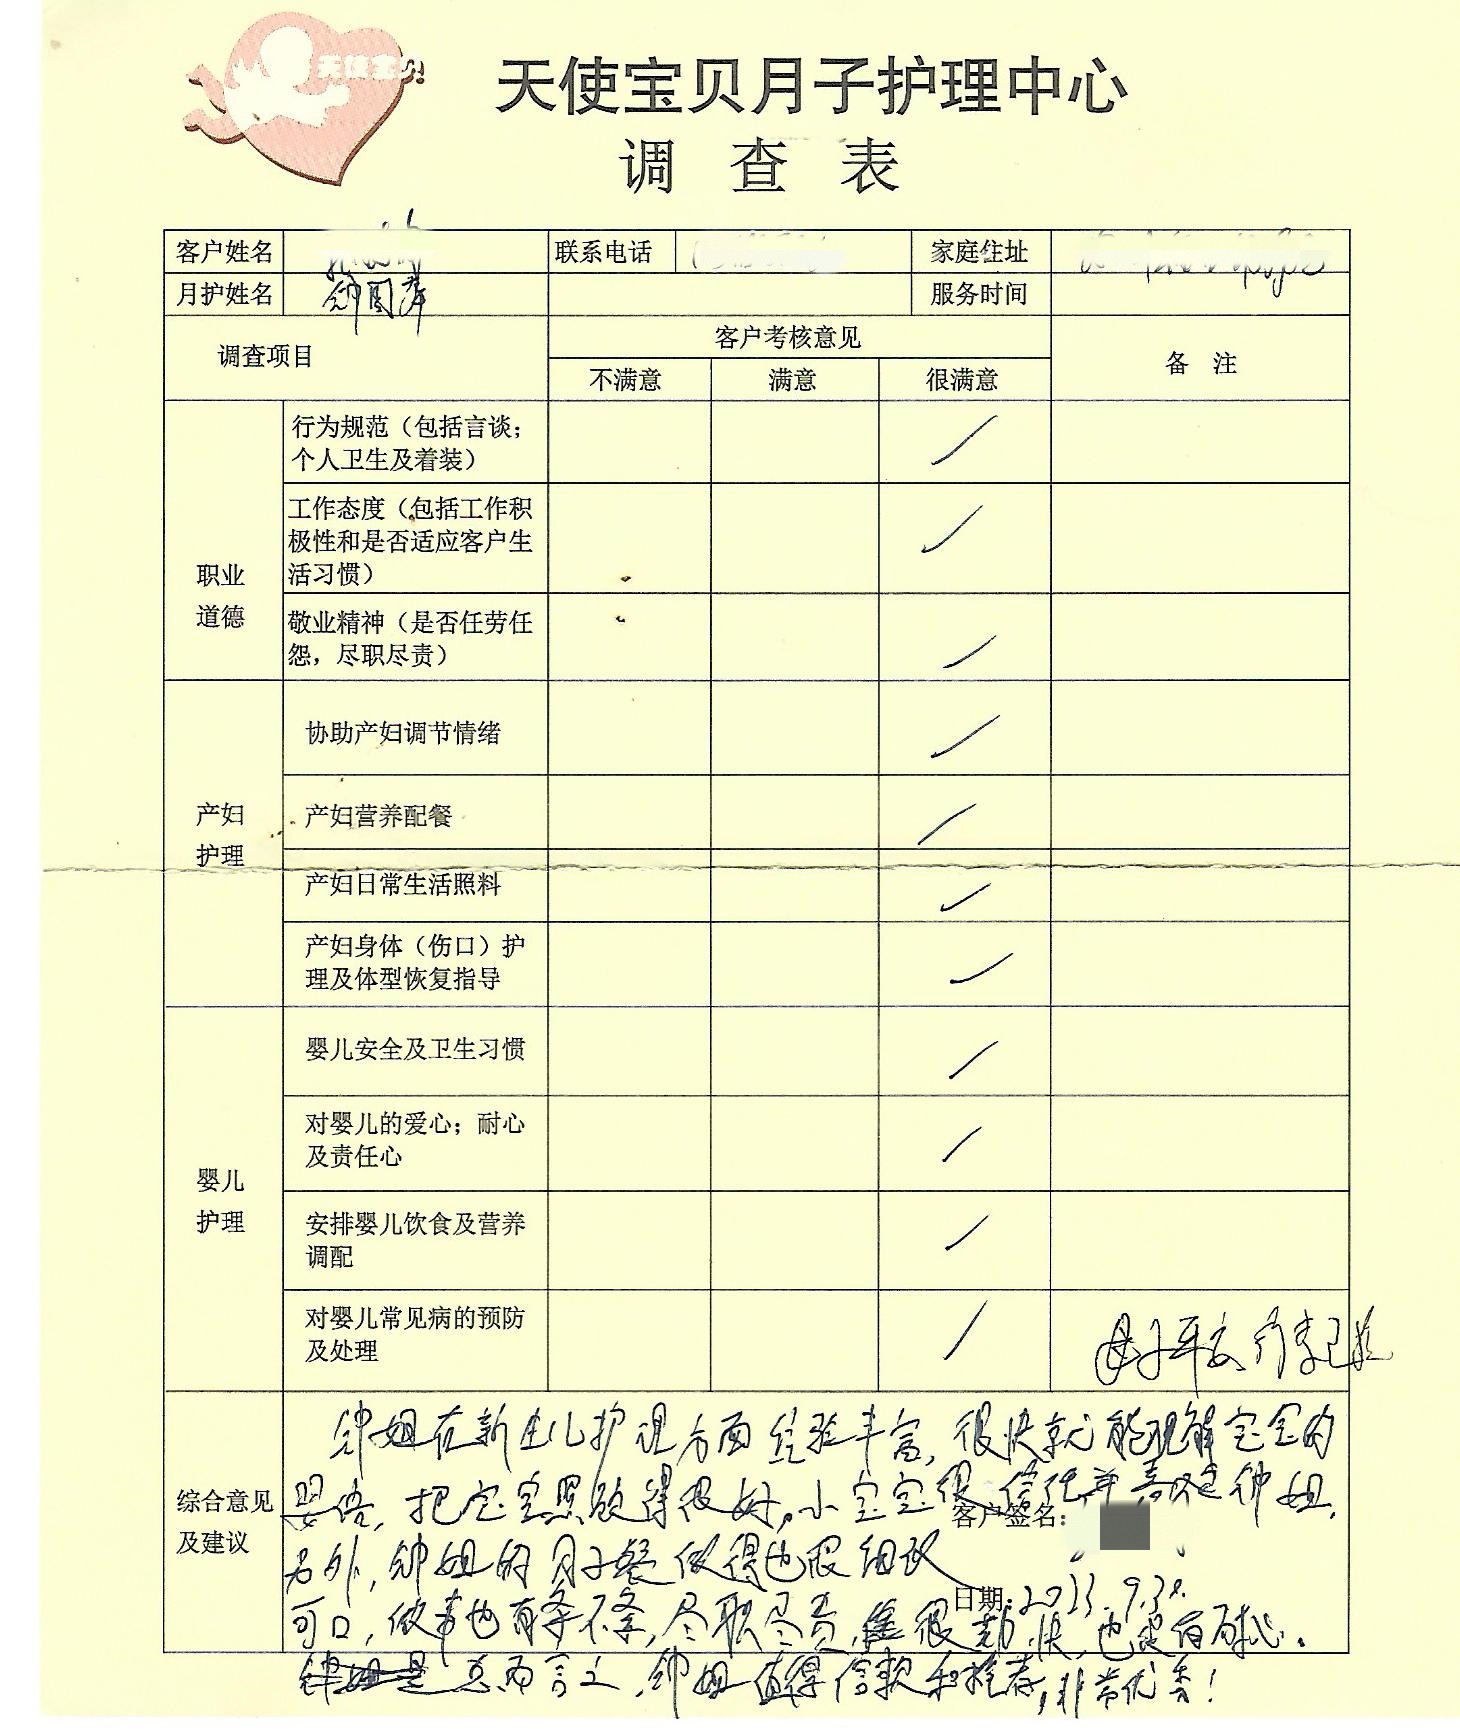 天使宝贝
天使宝贝月子护理中心
调 查 表
客户姓名 联系电话 家庭住址
月护姓名 服务时间
调查项目 客户考核意见 备 注
不满意 满意 很满意
职业
道德
行为规范（包括言谈；
个人卫生及着装）
工作态度（包括工作积
极性和是否适应客户生
活习惯）
敬业精神（是否任劳任
怨，尽职尽责）
产妇
护理
协助产妇调节情绪
产妇营养配餐
产妇日常生活照料
产妇身体（伤口）护
理及体型恢复指导
婴儿
护理
婴儿安全及卫生习惯
对婴儿的爱心；耐心
及责任心
安排婴儿饮食及营养
调配
对婴儿常见病的预防
及处理
综合意见
及建议
钟姐在新生儿护理方面经验丰富，很快就能理解宝宝的
婴语，把宝宝照顾得很好。小宝宝很信任并喜欢钟姐，
客户签名：
另外，钟姐的月子餐做得也很细致
日期：2023.9.30
可口，做事也有条不紊，尽职尽责，很勤快，也很有耐心。
总而言之，钟姐值得信赖和推荐，非常优秀！